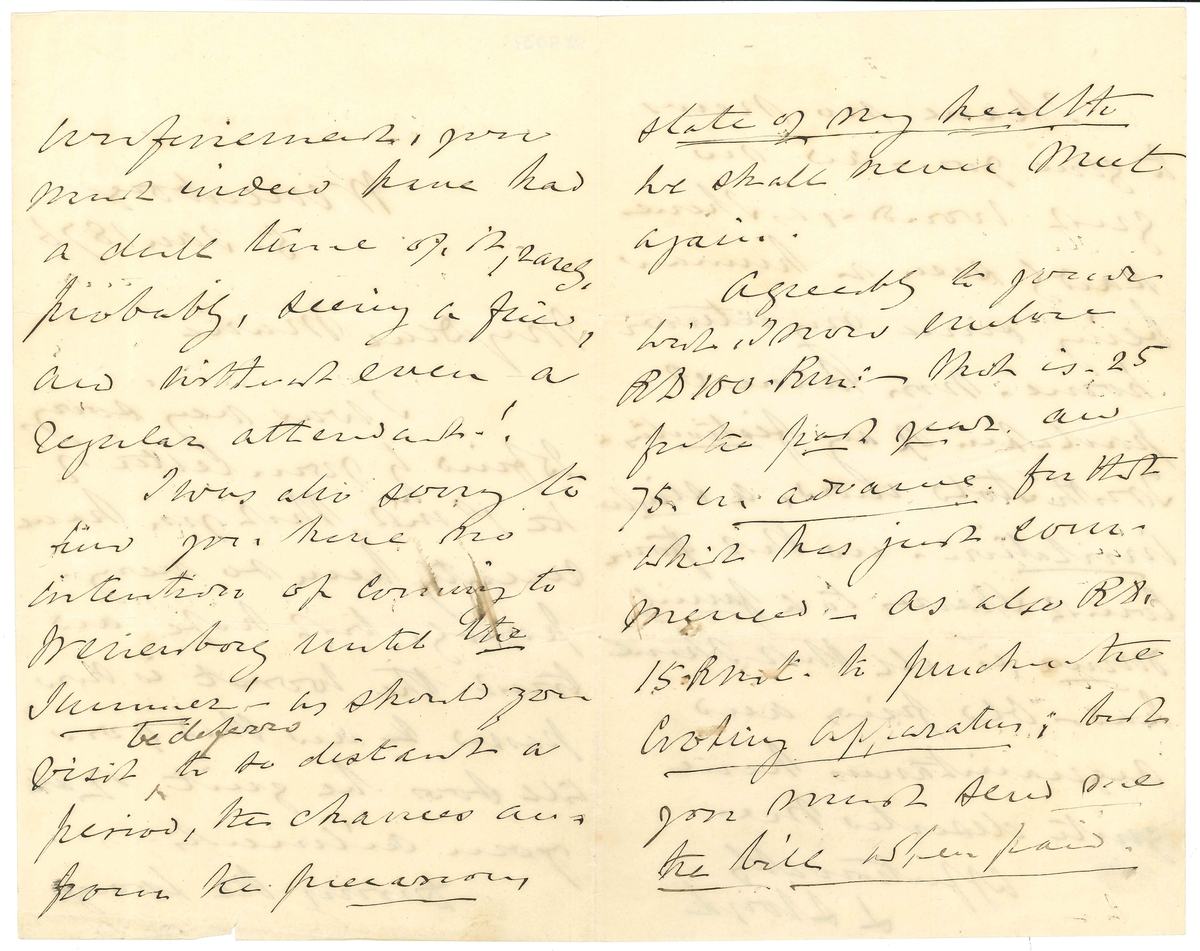 confinement, you
must indeed have had
a dull time of it, rarely,
probably, seeing a friend,
and without even a
regular attendant!
I was also sorry to
find you have no
intention of coming to
Wenersborg until the
Summer! – as should your
be deferred
visit to so distant a
period, the chances are
from the precarious
state of my health
we shall never meet
again.
Agreeably to your
wish, I now enclose
RD 100 Rm: – that is 25
for the past year and
75 in advance for that
which has just com-
menced – As also RD.
15 Rmt. to purchase the
Cooking apparatus; but
you must send me
the bill when paid.